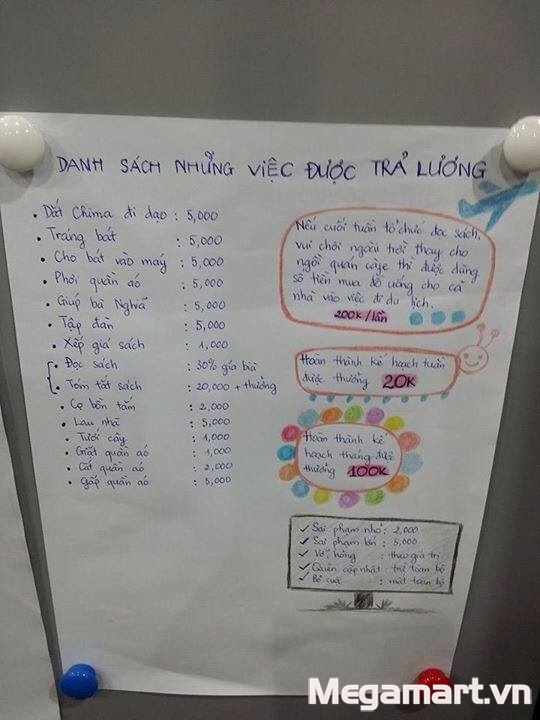 DANH SÁCH NHỮNG VIỆC ĐƯỢC TRẢ LƯƠNG
• Dắt Chima đi dạo : 5,000
• Tráng bát : 5,000
• Cho bát vào máy : 5,000
• Phơi quần áo : 5,000
• Giúp bà Nghĩa : 5,000
• Tập đàn : 5,000
• Xếp giá sách : 1,000
• Đọc sách : 30% gía bìa
• Tóm tắt sách : 20,000 + thưởng
• Cọ bồn tắm : 2,000
• Lau nhà : 5,000
• Tưới cây : 1,000
• Giặt quần aó : 1,000
• Cất quần aó : 2,000
• Gấp quần aó : 5,000
Nếu cuối tuần tổ chức đọc sách,
vui chơi ngoài trời thay cho
ngồi quán càfe thì được dùng
số tiền mua đồ uống cho cả
nhà vào việc đi du lịch.
200K/lần
Hoàn thành kế hoạch tuần
được thưởng 20K
Hoàn thành kế
hoạch tháng được
thưởng 100K
✓ Sai phạm nhỏ : 2,000
✓ Sai phạm lớn : 5,000
✓ Vỡ, hỏng : theo giá trị
✓ Quên cập nhật : trừ toàn bộ
✓ Bỏ cuộc : mất toàn bộ
Megamart.vn